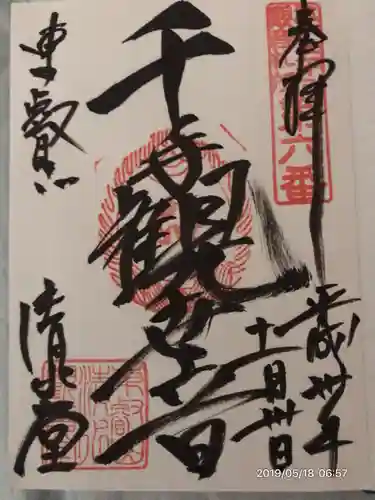 奉拝
第六番
平成卅年
十一月卅日
千手観世音
東叡山
清水堂
2019/05/18 06:57